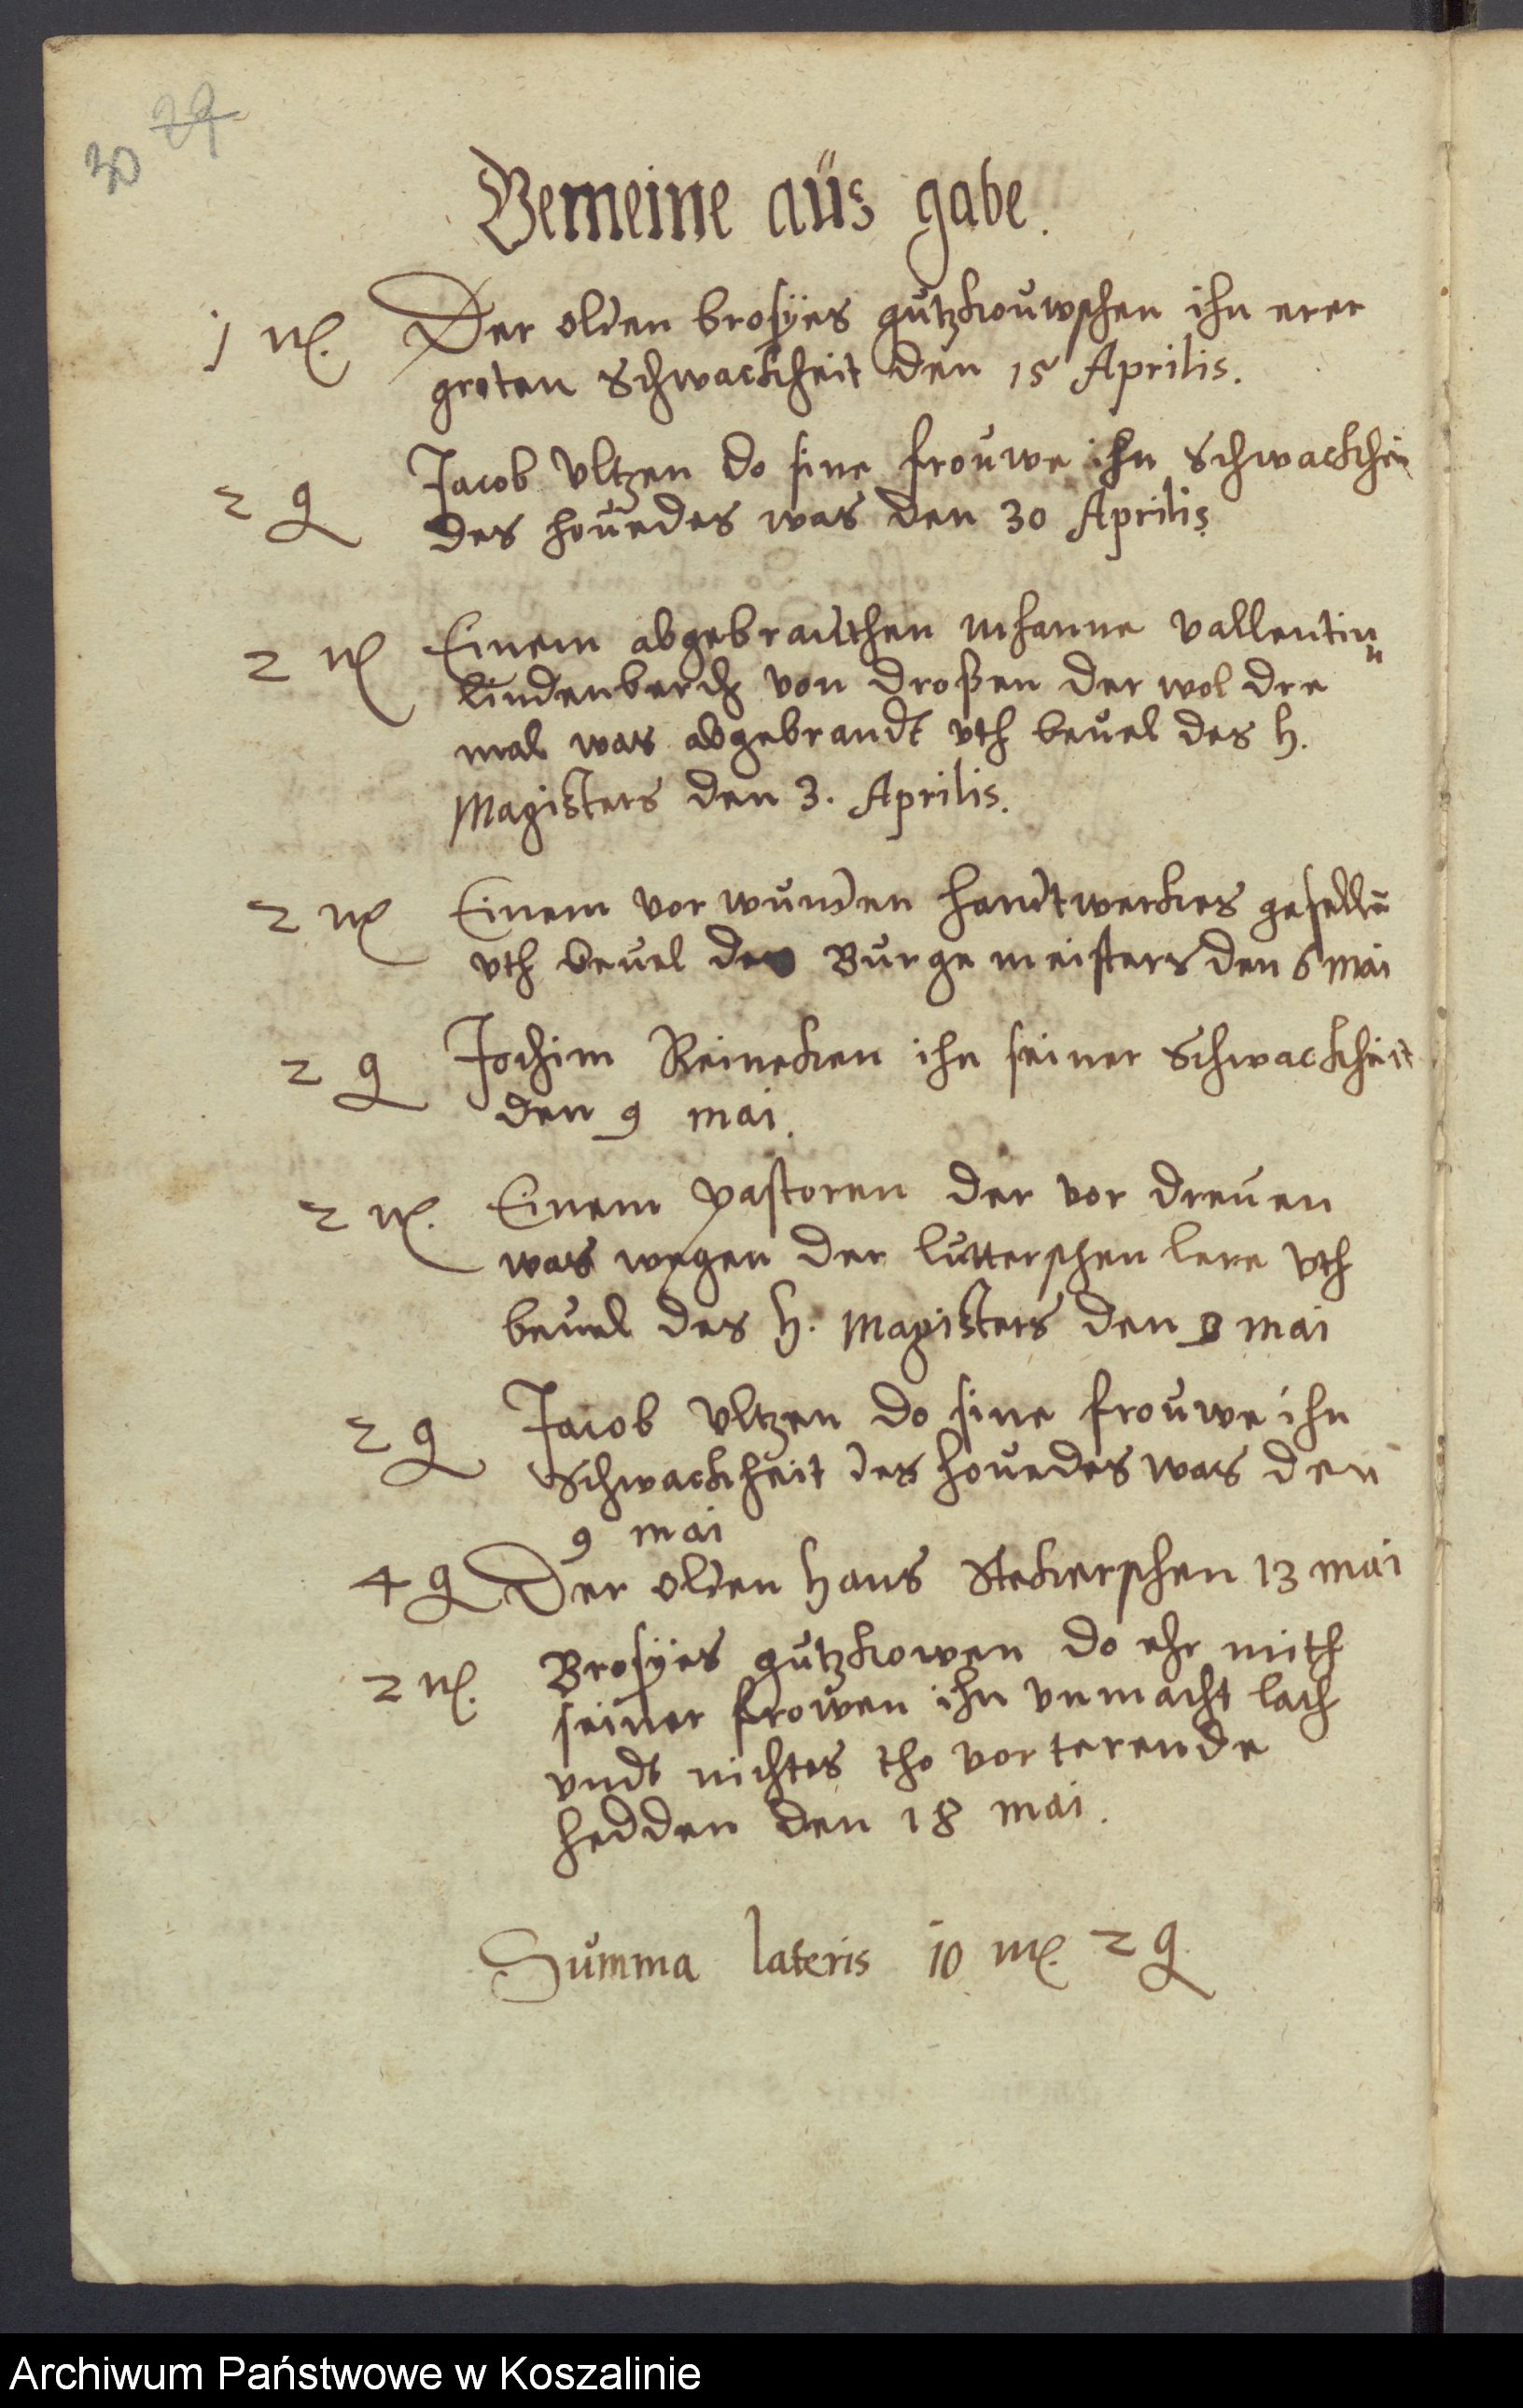 29
30
Gemeine aus gabe.
1 m. Der olden brosyes gutzkouwschen ihn erer
groten Schwackheit den 15 Aprilis.
2 g Jacob Vltzen do sine frouwe ihn Schwackhei
des houedes was den 30 Aprilis
2 m Einem abgebranthen manne vallentin
lindenberch von droßen der wol dre
mal was abgebrandt vth beuel des H.
Magisters den 3. Aprilis.
2 m Einem vorwunden handtwerkes gesellen
vth beuel des Burgemeisters den 6 mai
2 g Jochim Reineken ihn seiner Schwackheit
den 9 mai.
2 m. Einem pastoren der vor dreuen
was wegen der lutterschen lere vth
beuel des H. Magisters den 8 mai
2 g Jacob Vltzen do sine frouwe ihn
Schwackheit des houedes was den
9 mai
4 g Der olden Hans Stekerschen 13 mai
2 m. Brosyes gutzkowen do ehr mith
seiner frowen ihn vnmacht lach
vndt nichtes tho vorterende
hedden den 18 mai.
Summa lateris 10 m. 2 g
Archiwum Państwowe w Koszalinie